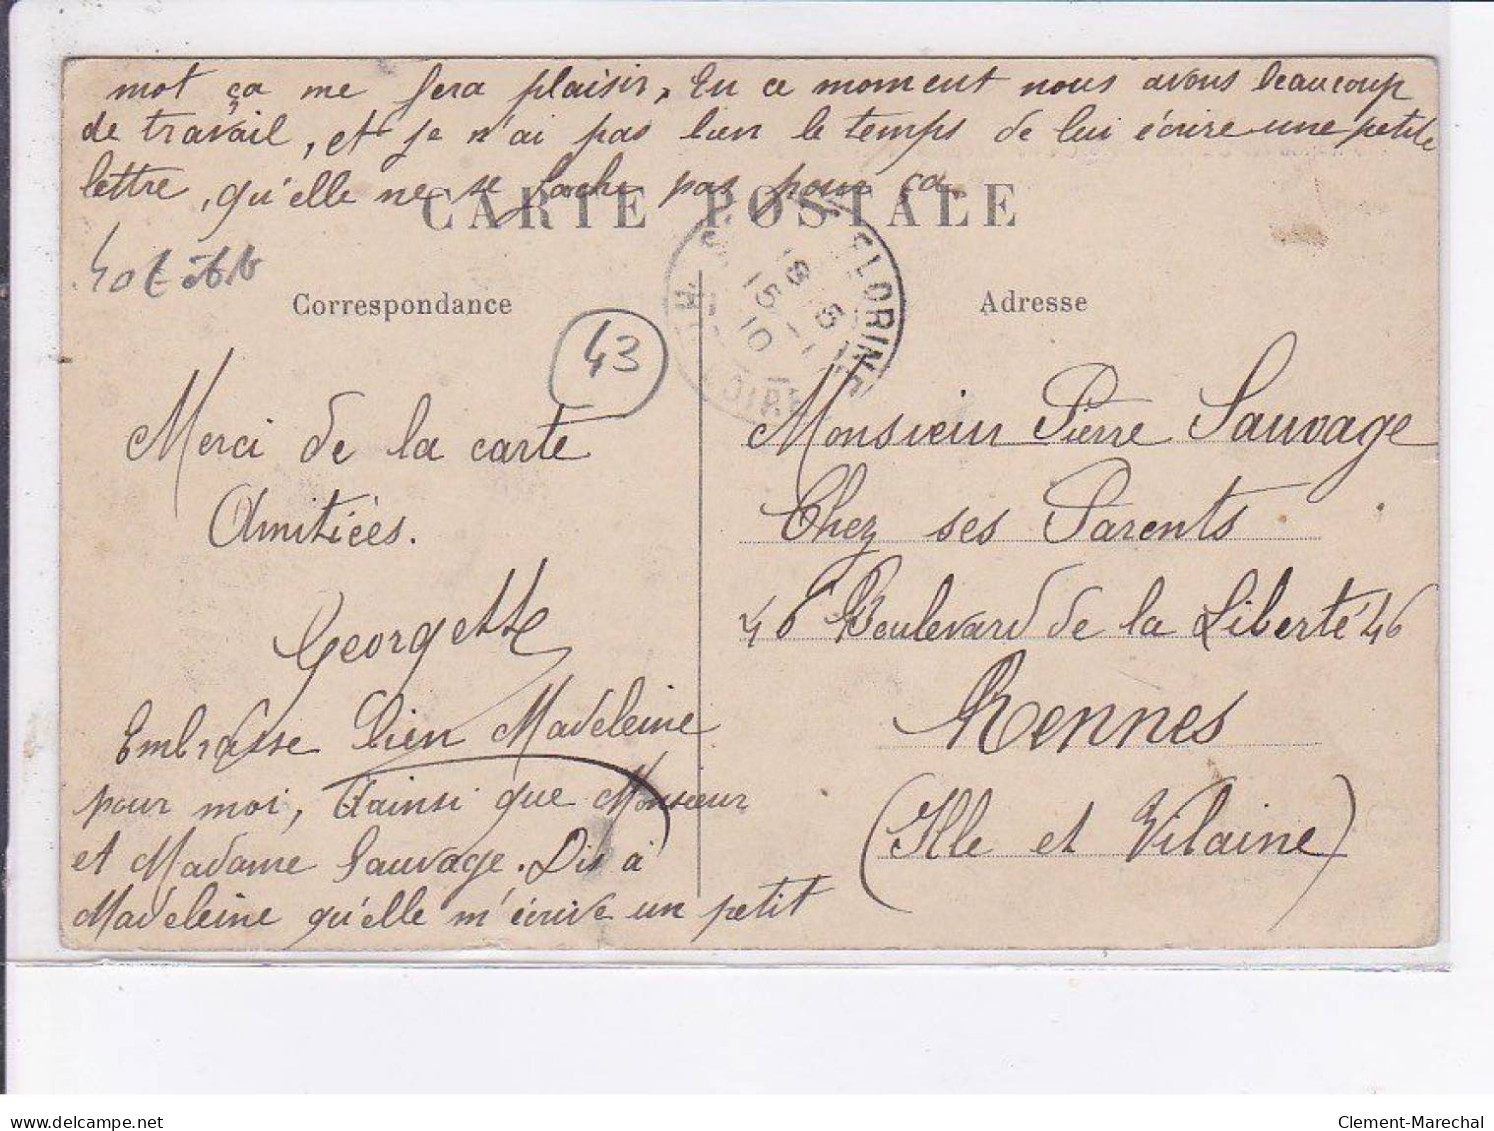 mot ça me fera plaisir, En ce moment nous avons beaucoup
de travail, et je n'ai pas bien le temps de lui écrire une petite
lettre, qu'elle ne se fache pas pour ça.
CARTE POSTALE
Correspondance
Adresse
43
FLORINE
LOIRE
Merci de la carte
Amitiées.
Georgette
Embrasse bien Madeleine
pour moi, ainsi que Monsieur
et Madame Sauvage. Dis à
Madeleine qu'elle m'écrive un petit
Monsieur Pierre Sauvage
Chez ses Parents
46 Boulevard de la Liberté 46
Rennes
(Ille et Vilaine)
delcampe.net
Clement-Marechal